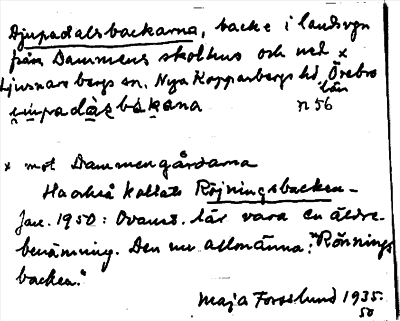 Djupadalsbackarna, backe i landsvgn
från Dammens skolhus och ned x
Ljusnarsbergs sn, Nya Kopparbergs hd, Örebro
län
n 56
x mot Dammengårdarna
Har också kallats Röjningsbacken –
Jan. 1950: Ovanst. lär vara en äldre
benämning. Den mer allmänna: "Rönnings
backen."
Maja Forsslund 1935.
50